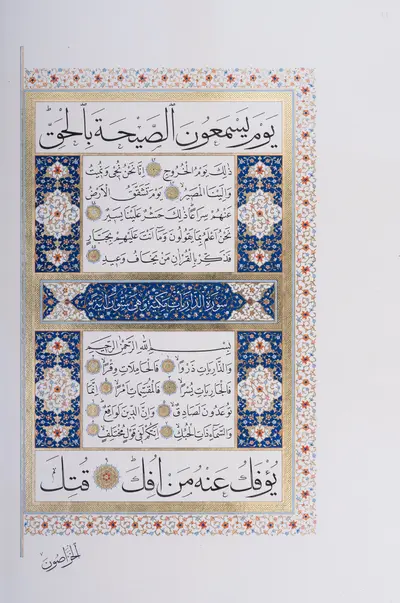 يَوْمَ يَسْمَعُونَ الصَّيْحَةَ بِالْحَقِّ
ذَلِكَ يَوْمُ الْخُرُوجِ إِنَّا نَحْنُ نُحْيِي وَنُمِيتُ
وَإِلَيْنَا الْمَصِيرُ يَوْمَ تَشَقَّقُ الْأَرْضُ
عَنْهُمْ سِرَاعًا ذَلِكَ حَشْرٌ عَلَيْنَا يَسِيرٌ
نَحْنُ أَعْلَمُ بِمَا يَقُولُونَ وَمَا أَنْتَ عَلَيْهِمْ بِجَبَّارٍ
فَذَكِّرْ بِالْقُرْآنِ مَنْ يَخَافُ وَعِيدِ
سورة الذاريات مكية وهي ستون آية
بِسْمِ اللَّهِ الرَّحْمَنِ الرَّحِيمِ
وَالذَّارِيَاتِ ذَرْوًا فَالْحَامِلَاتِ وِقْرًا
فَالْجَارِيَاتِ يُسْرًا فَالْمُقَسِّمَاتِ أَمْرًا إِنَّمَا
تُوعَدُونَ لَصَادِقٌ وَإِنَّ الدِّينَ لَوَاقِعٌ
وَالسَّمَاءِ ذَاتِ الْحُبُكِ إِنَّكُمْ لَفِي قَوْلٍ مُخْتَلِفٍ
يُؤْفَكُ عَنْهُ مَنْ أُفِكَ قُتِلَ
الْخَرَّاصُونَ